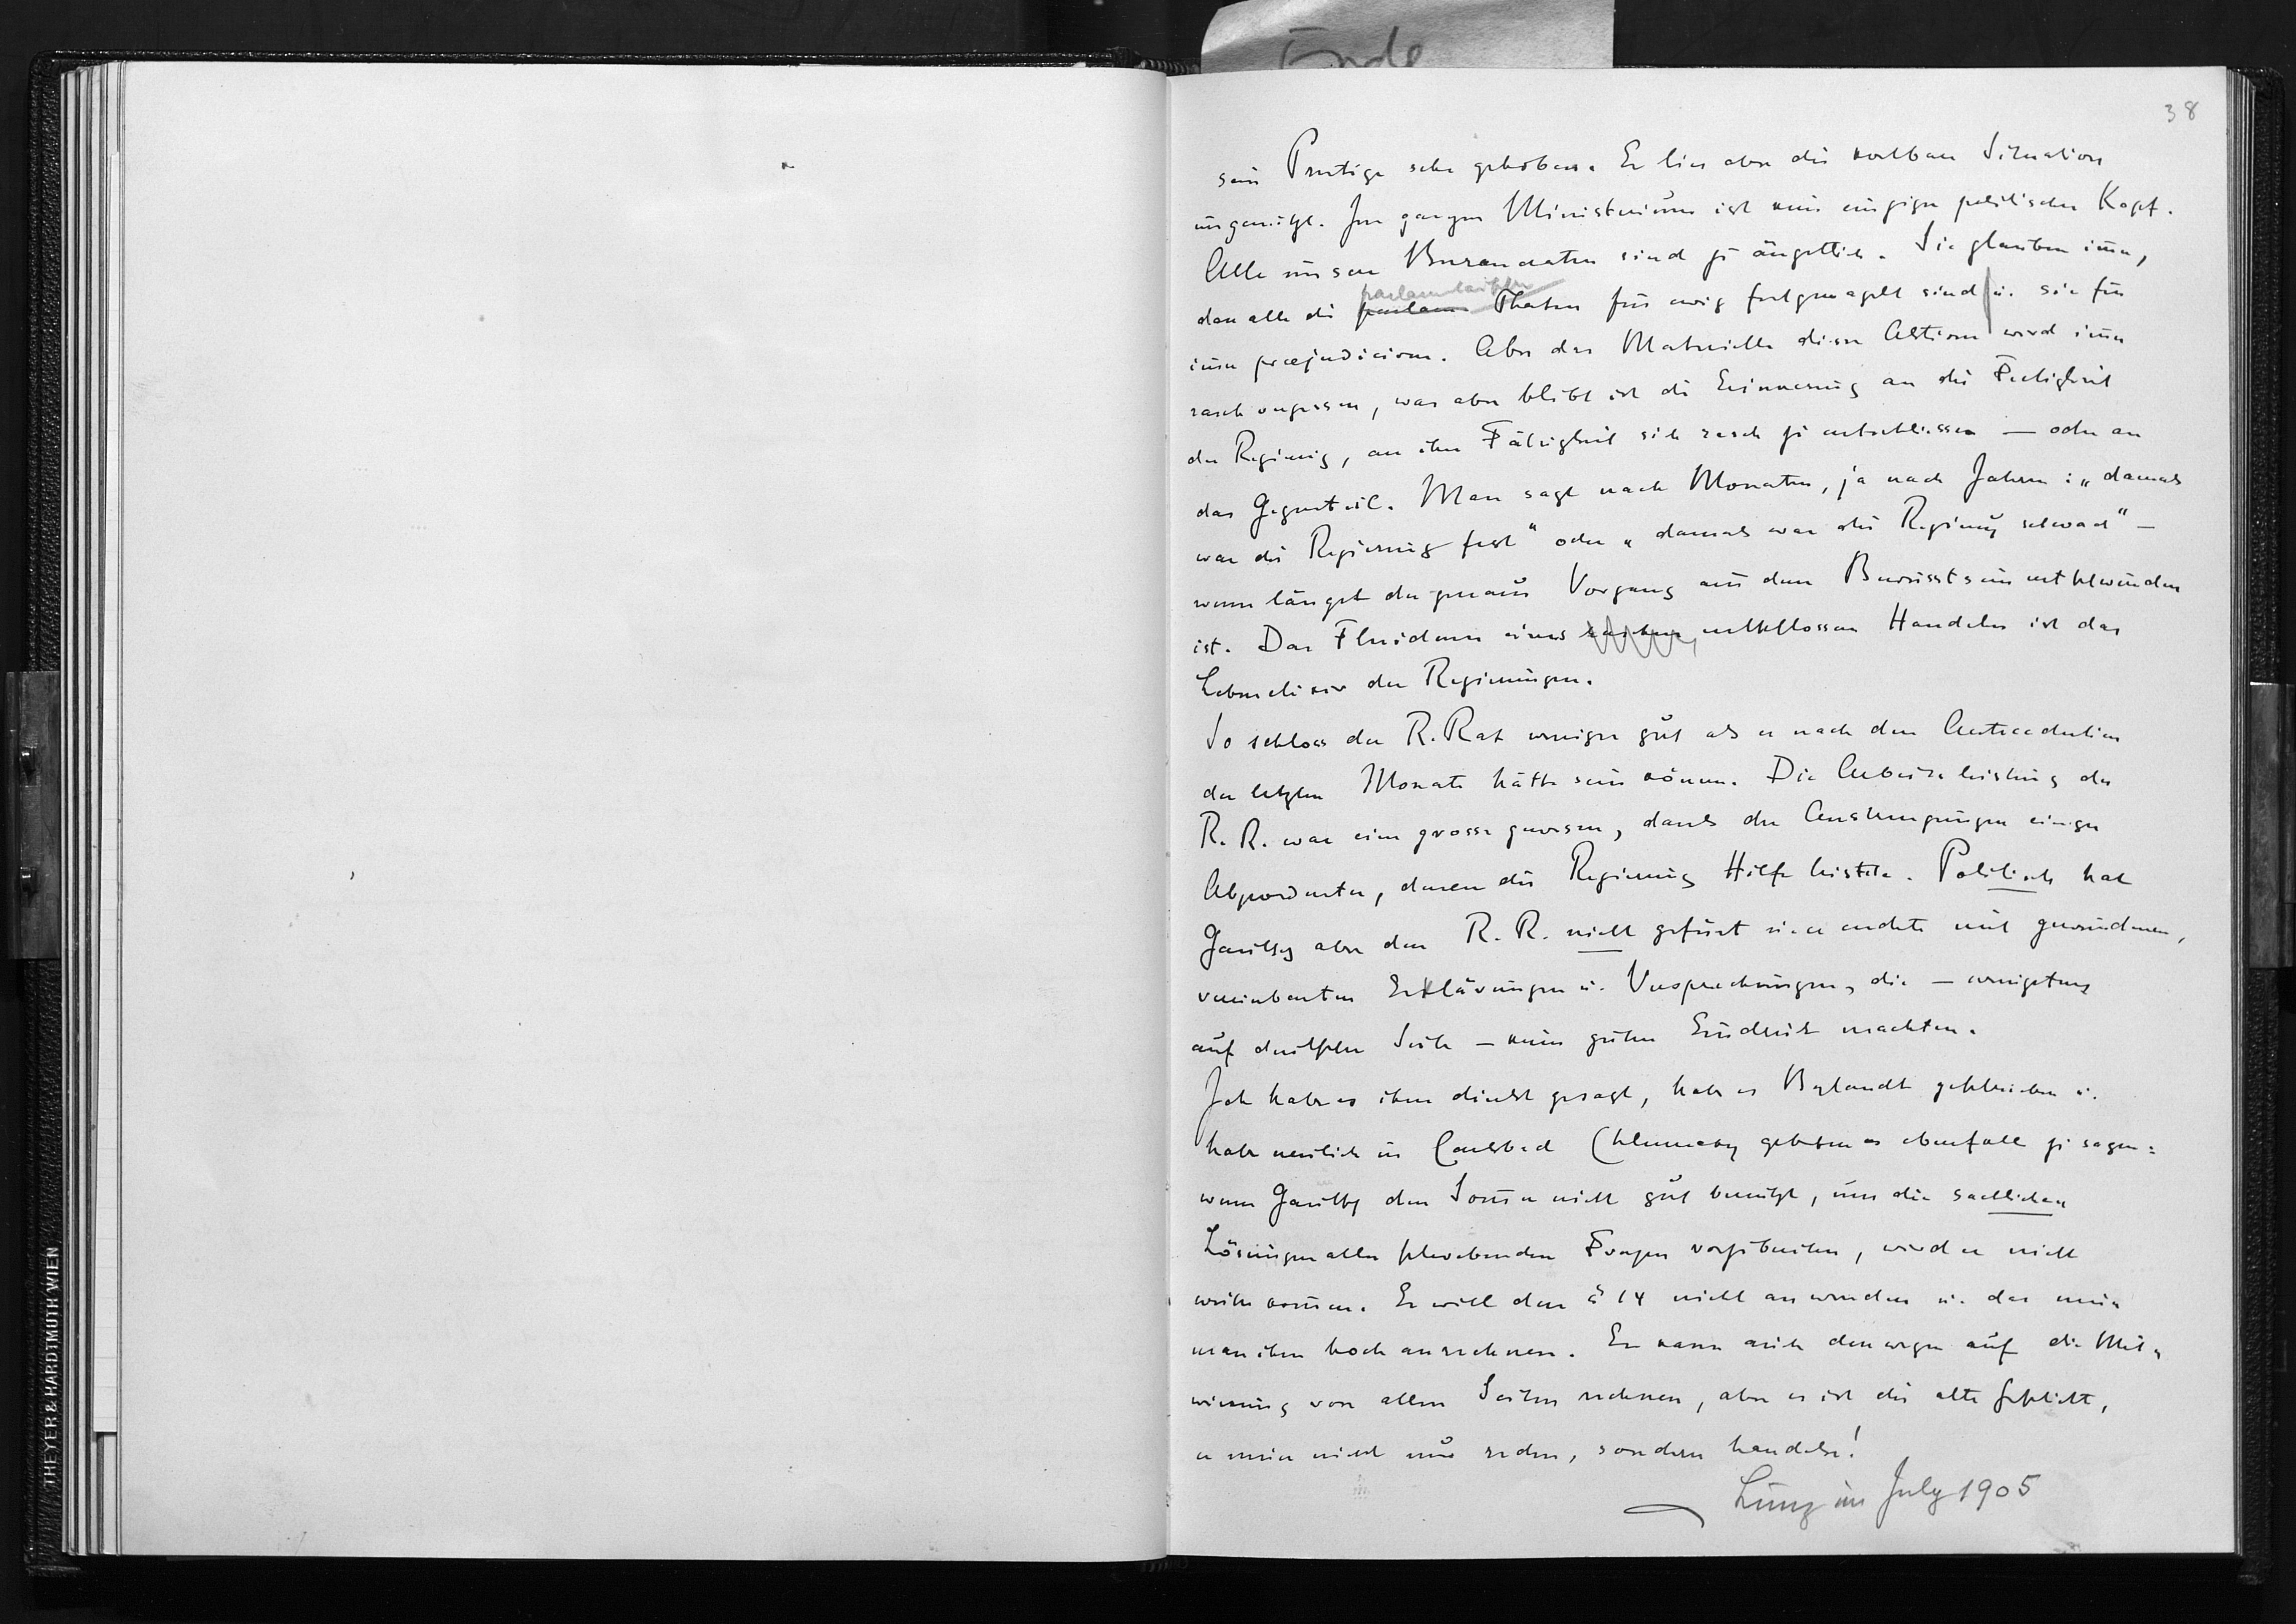 Ende
38
sein Prestige sehr gehoben. Er lies aber die kostbare Situation
ungenützt. Im ganzen Ministerium ist kein einziger politischer Kopf.
Alle unsere Bureaukraten sind zu ängstlich. Sie glauben imer,
dass alle die parlam. parlamentarischen Thaten für ewig festgenagelt sind u. sie für
imer præjudicieren. Aber das Materielle dieser Aktionen wird imer
rasch vergessen, was aber bleibt ist die Erinnerung an die Festigkeit
der Regierung, an ihre Fähigkeit sich rasch zu entschliessen — oder an
das Gegenteil. Man sagt nach Monaten, ja nach Jahren: „damals
war die Regierung fest“ oder „damals war die Regierung schwach“ —
wenn längst der genaue Vorgang aus dem Bewusstsein entschwunden
ist. Das Fluidum eines raschen, entschlossenen Handelns ist das
Lebenselixir der Regierungen.
So schloss der R. Rat weniger gut als er nach den Antecedentien
der letzten Monate hätte sein können. Die Arbeitsleistung des
R. R. war eine grosse gewesen, dank der Anstrengungen einiger
Abgeordneter, denen die Regierung Hilfe leistete. Politisch hat
Gautsch aber den R. R. nicht geführt u. er endete mit gewundenen,
vereinbarten Erklärungen u. Versprechungen, die — wenigstens
auf deutscher Seite — keinen guten Eindruck machten.
Ich habe es ihm direkt gesagt, habe es Bylandt geschrieben u.
habe neulich in Carlsbad Chlumecky gebeten es ebenfalls zu sagen:
wenn Gautsch den Somer nicht gut benützt, um die sachlichen
Lösungen aller schwebenden Fragen vorzubereiten, wird er nicht
weiter komen. Er will den § 14 nicht anwenden u. das muss
man ihm hoch anrechnen. Er kann auch deswegen auf die Mit-
wirkung von allen Seiten rechnen, aber es ist die alte Geschichte,
er muss nicht nur reden, sondern handeln!
Lunz im July 1905
THEYER & HARDTMUTH WIEN